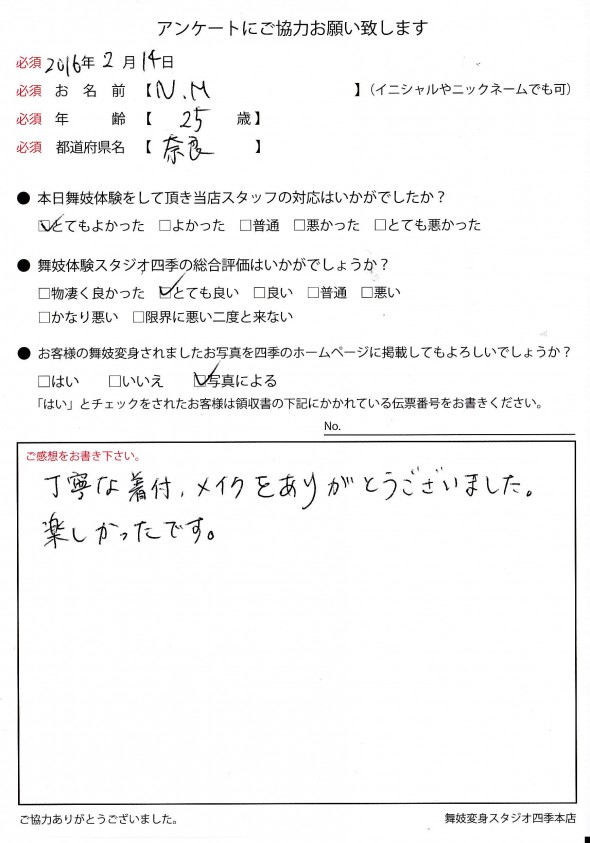 アンケートにご協力お願い致します
必須 2016年 2 月 14 日
必須 お 名 前 【N.M 】（イニシャルやニックネームでも可）
必須 年 齢 【 25 歳】
必須 都道府県名 【 奈良 】
● 本日舞妓体験をして頂き当店スタッフの対応はいかがでしたか？
☑とてもよかった □よかった □普通 □悪かった □とても悪かった
● 舞妓体験スタジオ四季の総合評価はいかがでしょうか？
□物凄く良かった ☑とても良い □良い □普通 □悪い
□かなり悪い □限界に悪い二度と来ない
● お客様の舞妓変身されましたお写真を四季のホームページに掲載してもよろしいでしょうか？
□はい □いいえ ☑写真による
「はい」とチェックをされたお客様は領収書の下記にかかれている伝票番号をお書きください。
No.
ご感想をお書き下さい。
丁寧な着付、メイクをありがとうございました。
楽しかったです。
ご協力ありがとうございました。
舞妓変身スタジオ四季本店